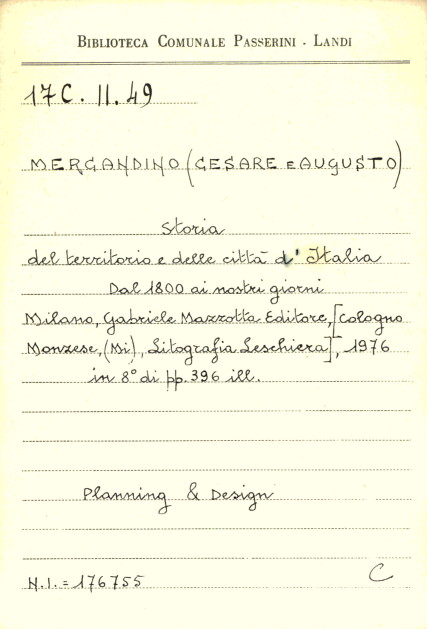 BIBLIOTECA COMUNALE PASSERINI - LANDI
17C. II. 49
MERCANDINO (CESARE E AUGUSTO)
Storia
del territorio e delle città d'Italia
Dal 1800 ai nostri giorni
Milano, Gabriele Mazzotta Editore, [Cologno
Monzese, (Mi), Litografia Leschiera], 1976
in 8° di pp. 396 ill.
Planning & Design
N.I. = 176755
C